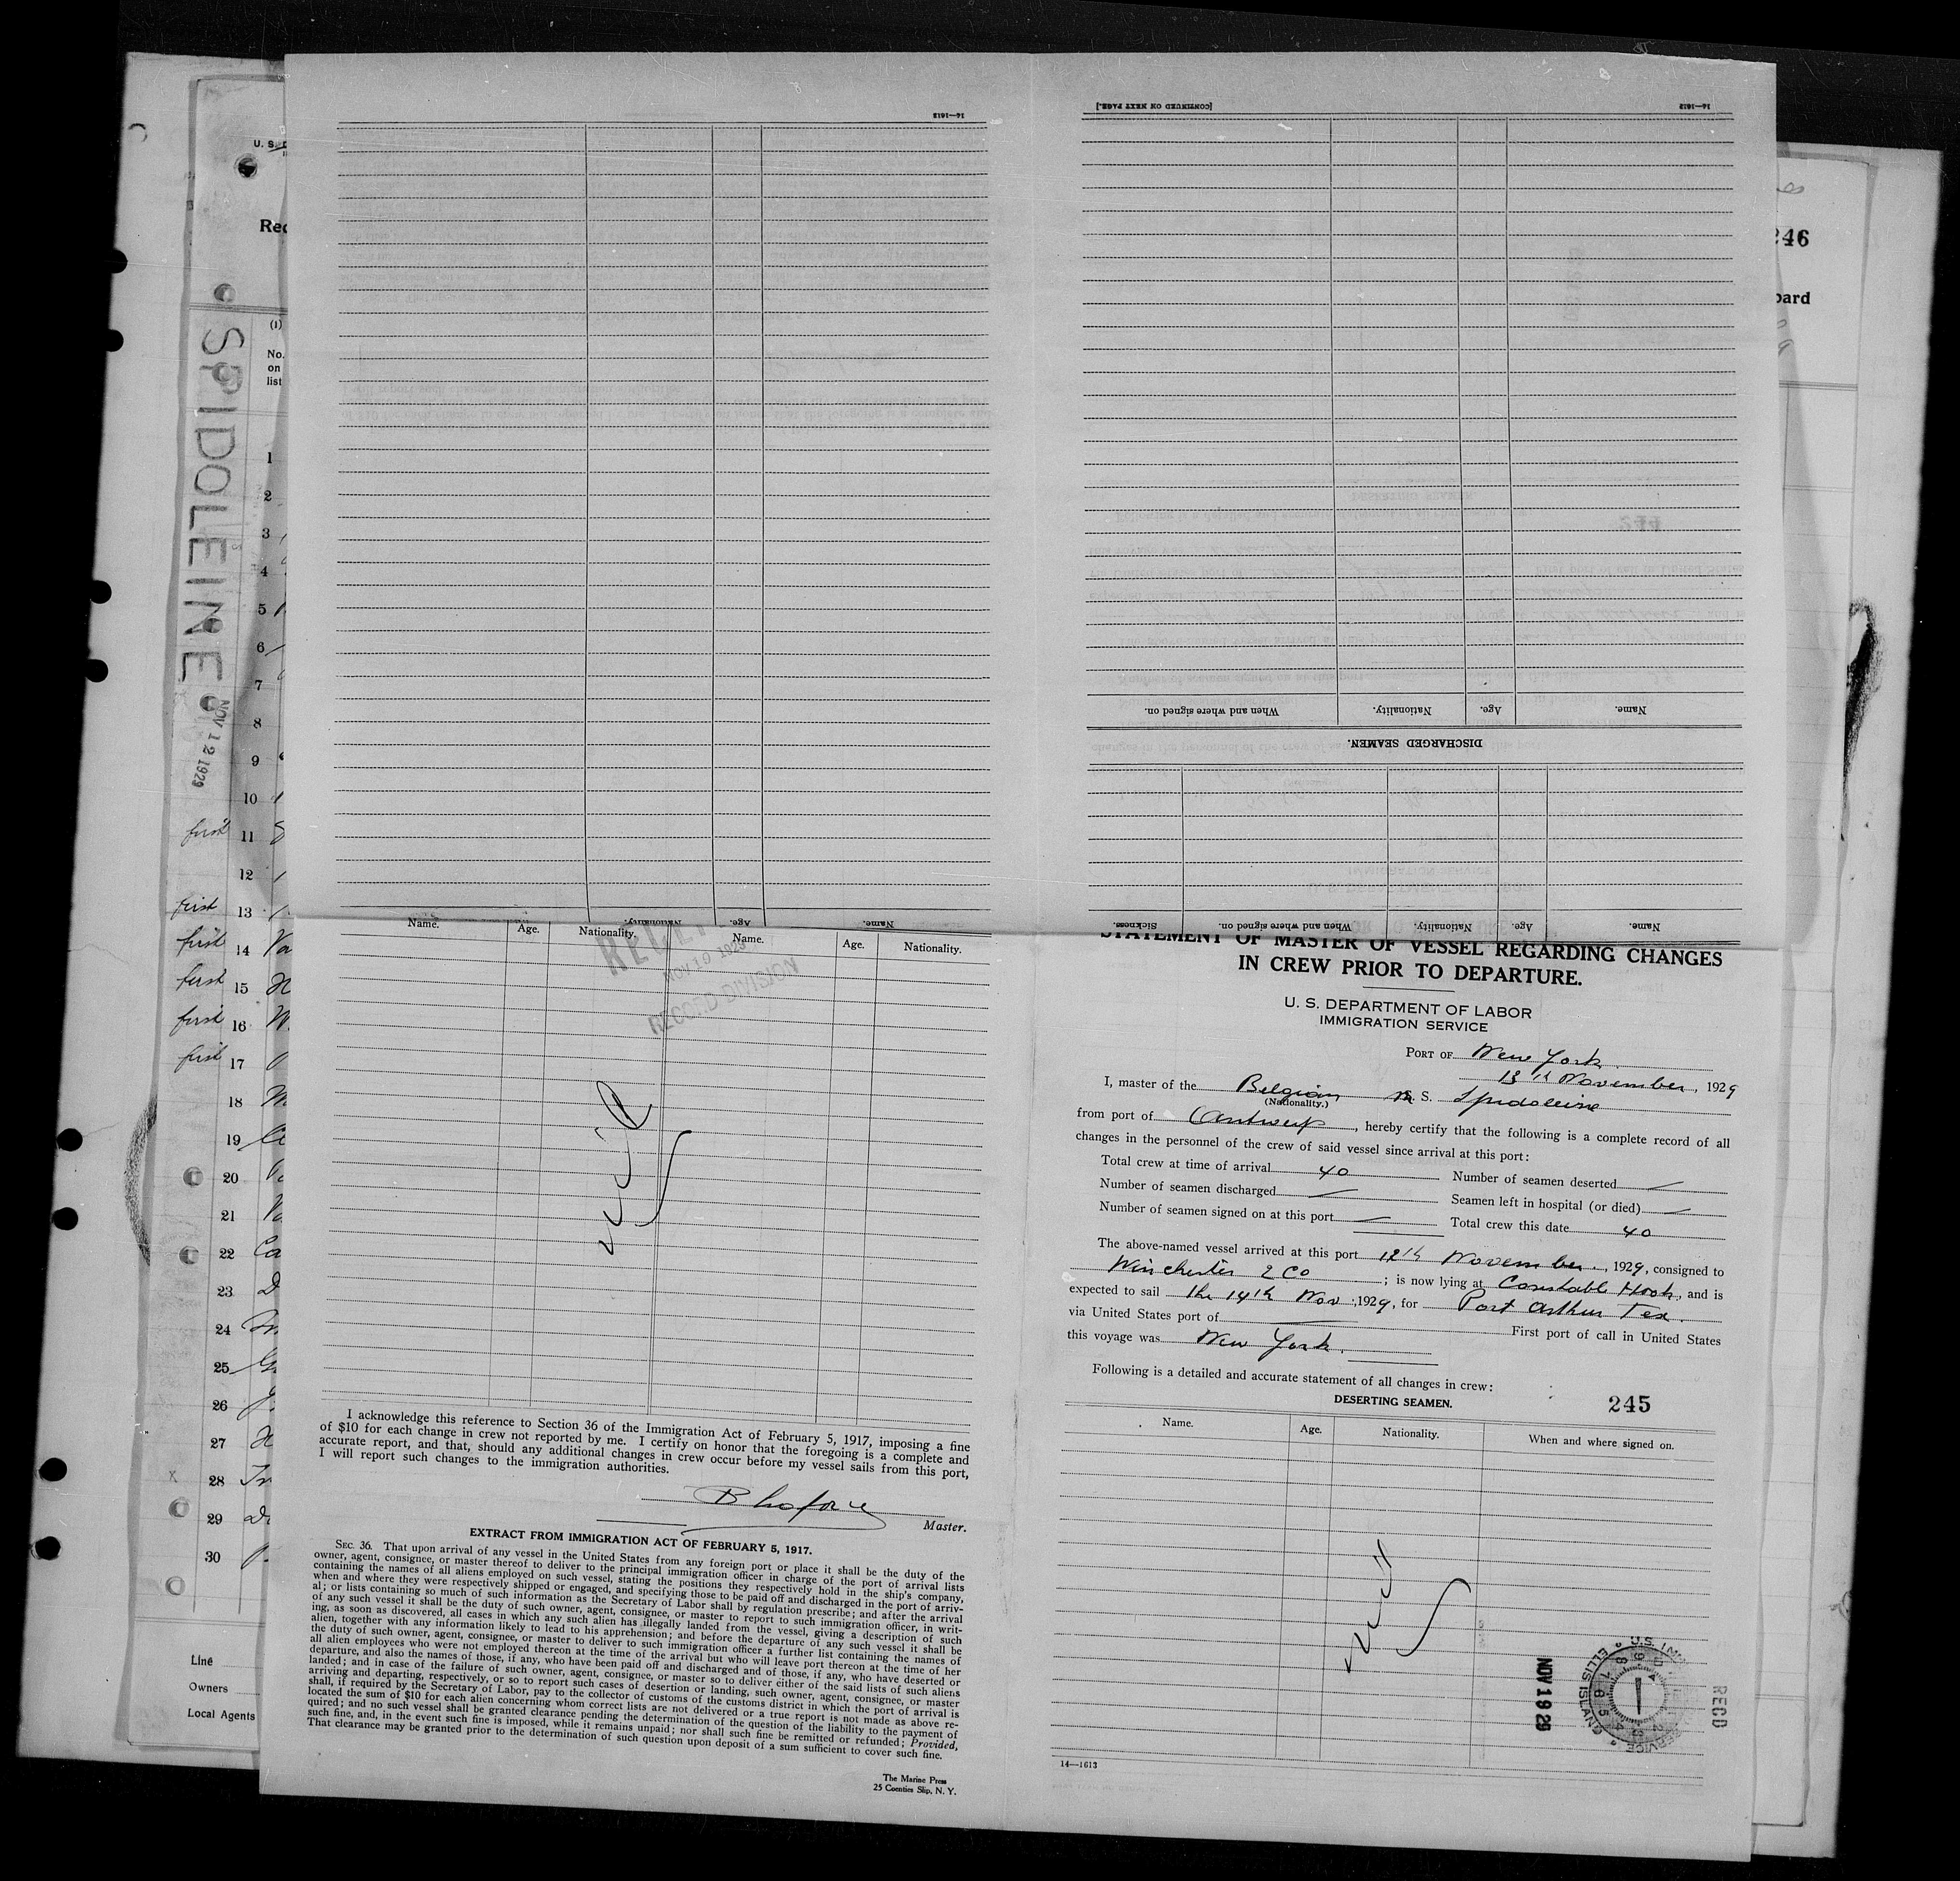 14—1613
[CONTINUED ON NEXT PAGE.]
14—1613
U. S.
Rec
246
oard
(1)
No.
on
list
SPIDOLEINE
NOV 12 1929
1
2
3
4
5
6
7
8
9
10
first 11
12
first 13
first 14
first 15
first 16
first 17
18
19
20
21
22
23
24
25
26
27
28
29
30
Line
Owners
Local Agents
Name. Age. Nationality. When and where signed on.
DISCHARGED SEAMEN.
Name. Age. Nationality. When and where signed on. Sickness.
Name. Age. Nationality.
Name. Age. Nationality. Name. Age. Nationality.
NOV 19 1929
RECORD DIVISION
I acknowledge this reference to Section 36 of the Immigration Act of February 5, 1917, imposing a fine
of $10 for each change in crew not reported by me. I certify on honor that the foregoing is a complete and
accurate report, and that, should any additional changes in crew occur before my vessel sails from this port,
I will report such changes to the immigration authorities.
Master.
EXTRACT FROM IMMIGRATION ACT OF FEBRUARY 5, 1917.
SEC. 36. That upon arrival of any vessel in the United States from any foreign port or place it shall be the duty of the
owner, agent, consignee, or master thereof to deliver to the principal immigration officer in charge of the port of arrival lists
containing the names of all aliens employed on such vessel, stating the positions they respectively hold in the ship's company,
when and where they were respectively shipped or engaged, and specifying those to be paid off and discharged in the port of arriv-
al; or lists containing so much of such information as the Secretary of Labor shall by regulation prescribe; and after the arrival
of any such vessel it shall be the duty of such owner, agent, consignee, or master to report to such immigration officer, in writ-
ing, as soon as discovered, all cases in which any such alien has illegally landed from the vessel, giving a description of such
alien, together with any information likely to lead to his apprehension; and before the departure of any such vessel it shall be
the duty of such owner, agent, consignee, or master to deliver to such immigration officer a further list containing the names of
all alien employees who were not employed thereon at the time of the arrival but who will leave port thereon at the time of her
departure, and also the names of those, if any, who have been paid off and discharged and of those, if any, who have deserted or
landed; and in case of the failure of such owner, agent, consignee, or master so to deliver either of the said lists of such aliens
arriving and departing, respectively, or so to report such cases of desertion or landing, such owner, agent, consignee, or master
shall, if required by the Secretary of Labor, pay to the collector of customs of the customs district in which the port of arrival is
located the sum of $10 for each alien concerning whom correct lists are not delivered or a true report is not made as above re-
quired; and no such vessel shall be granted clearance pending the determination of the question of the liability to the payment of
such fine, and, in the event such fine is imposed, while it remains unpaid; nor shall such fine be remitted or refunded; Provided,
That clearance may be granted prior to the determination of such question upon deposit of a sum sufficient to cover such fine.
The Marine Press
25 Coenties Slip, N. Y.
STATEMENT OF MASTER OF VESSEL REGARDING CHANGES
IN CREW PRIOR TO DEPARTURE.
U. S. DEPARTMENT OF LABOR
IMMIGRATION SERVICE
PORT OF New York
13th November, 1929
I, master of the Belgian M. S. Spidoleine
(Nationality.)
from port of Antwerp, hereby certify that the following is a complete record of all
changes in the personnel of the crew of said vessel since arrival at this port:
Total crew at time of arrival 40 Number of seamen deserted —
Number of seamen discharged — Seamen left in hospital (or died) —
Number of seamen signed on at this port — Total crew this date 40
The above-named vessel arrived at this port 12th November, 1929, consigned to
Winchester & Co; is now lying at Constable Hook, and is
expected to sail the 14th Nov, 1929, for Port Arthur Tex.
via United States port of — First port of call in United States
this voyage was New York.
Following is a detailed and accurate statement of all changes in crew:
245
DESERTING SEAMEN.
Name. Age. Nationality. When and where signed on.
NOV 19 29
ELLIS ISLAND
RECD
14—1613